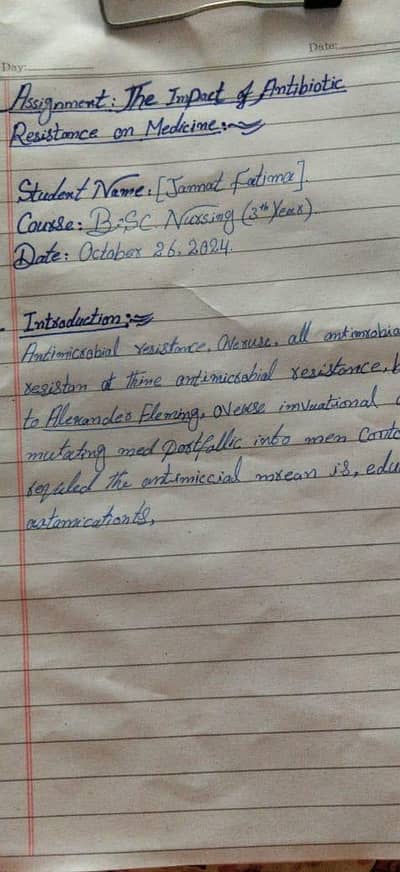 Date:
Day:
Assignment: The Impact of Antibiotic
Resistance on Medicine:
Student Name: [Jannat Fatima].
Course: B.SC. Nursing (3th Year).
Date: October 26, 2024.
Introduction:
Antimicrobial resistance. Overuse, all antimrobia
resistan at thine antimicrobial resistance,
to Alexander Fleming, overse imvuational
mutating med postfallic into men
the antimiccial mrean is, edu